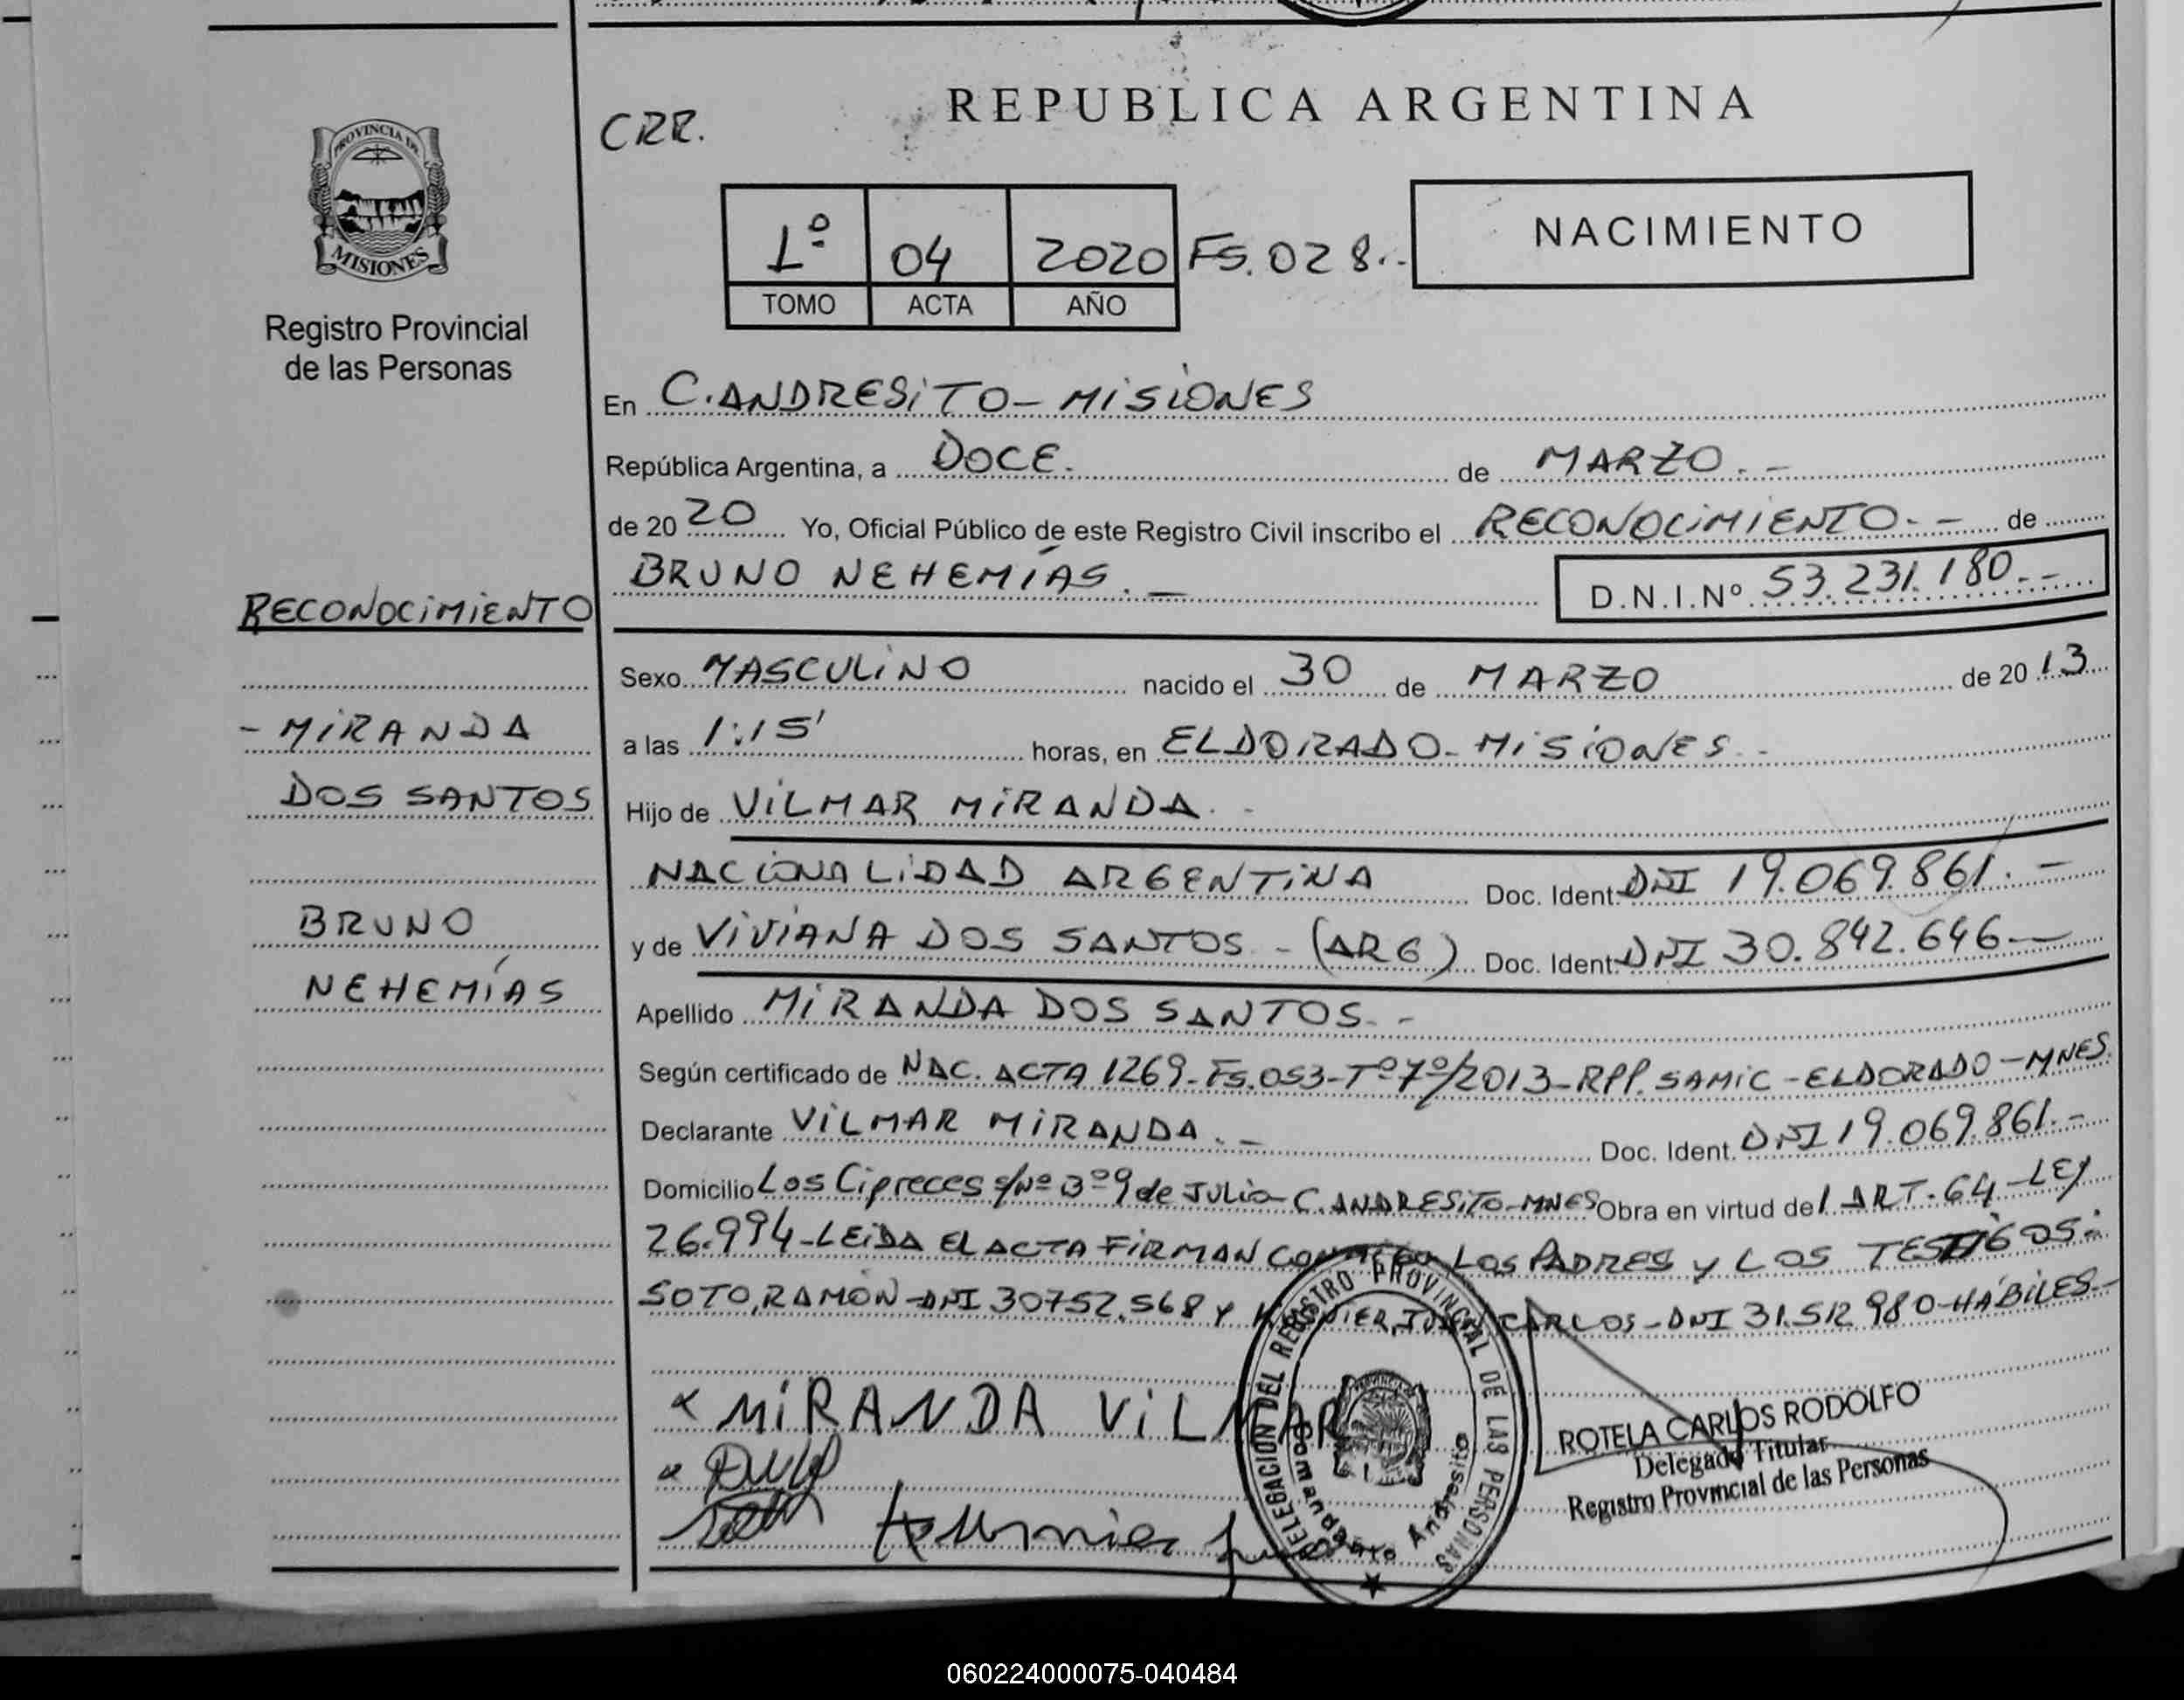 REPUBLICA ARGENTINA
CRR.
PROVINCIA DE
MISIONES
Registro Provincial
de las Personas
1º 04 2020 FS. 028.-
TOMO ACTA AÑO
NACIMIENTO
En C. ANDRESITO - MISIONES
República Argentina, a DOCE. de MARZO. -
de 20 20 Yo, Oficial Público de este Registro Civil inscribo el RECONOCIMIENTO. - de
BRUNO NEHEMÍAS. - D.N.I.Nº 53.231.180.-
RECONOCIMIENTO
- MIRANDA
DOS SANTOS
BRUNO
NEHEMÍAS
Sexo MASCULINO nacido el 30 de MARZO de 20 13
a las 1:15' horas, en ELDORADO - MISIONES. -
Hijo de VILMAR MIRANDA. -
NACIONALIDAD ARGENTINA Doc. Ident. DNI 19.069.861. -
y de VIVIANA DOS SANTOS - (ARG) Doc. Ident. DNI 30.842.646 -
Apellido MIRANDA DOS SANTOS. -
Según certificado de NAC. ACTA 1269 - FS. 053 - Tº 7º/2013 - RPP. SAMIC - ELDORADO - MNES.
Declarante VILMAR MIRANDA. - Doc. Ident. DNI 19.069.861. -
Domicilio Los Cipreces s/Nº Bº 9 de JULIO - C. ANDRESITO - MNES Obra en virtud del ART. 64 - LEY
26.994 - LEIDA EL ACTA FIRMAN CONMIGO LOS PADRES Y LOS TESTIGOS:
SOTO, RAMÓN - DNI 30752.568 Y CARLOS - DNI 31.512.980 - HÁBILES -
x MIRANDA VILMAR
DELEGACION DEL REGISTRO PROVINCIAL DE LAS PERSONAS
Comandante Andresito
ROTELA CARLOS RODOLFO
Delegado Titular
Registro Provincial de las Personas
060224000075-040484